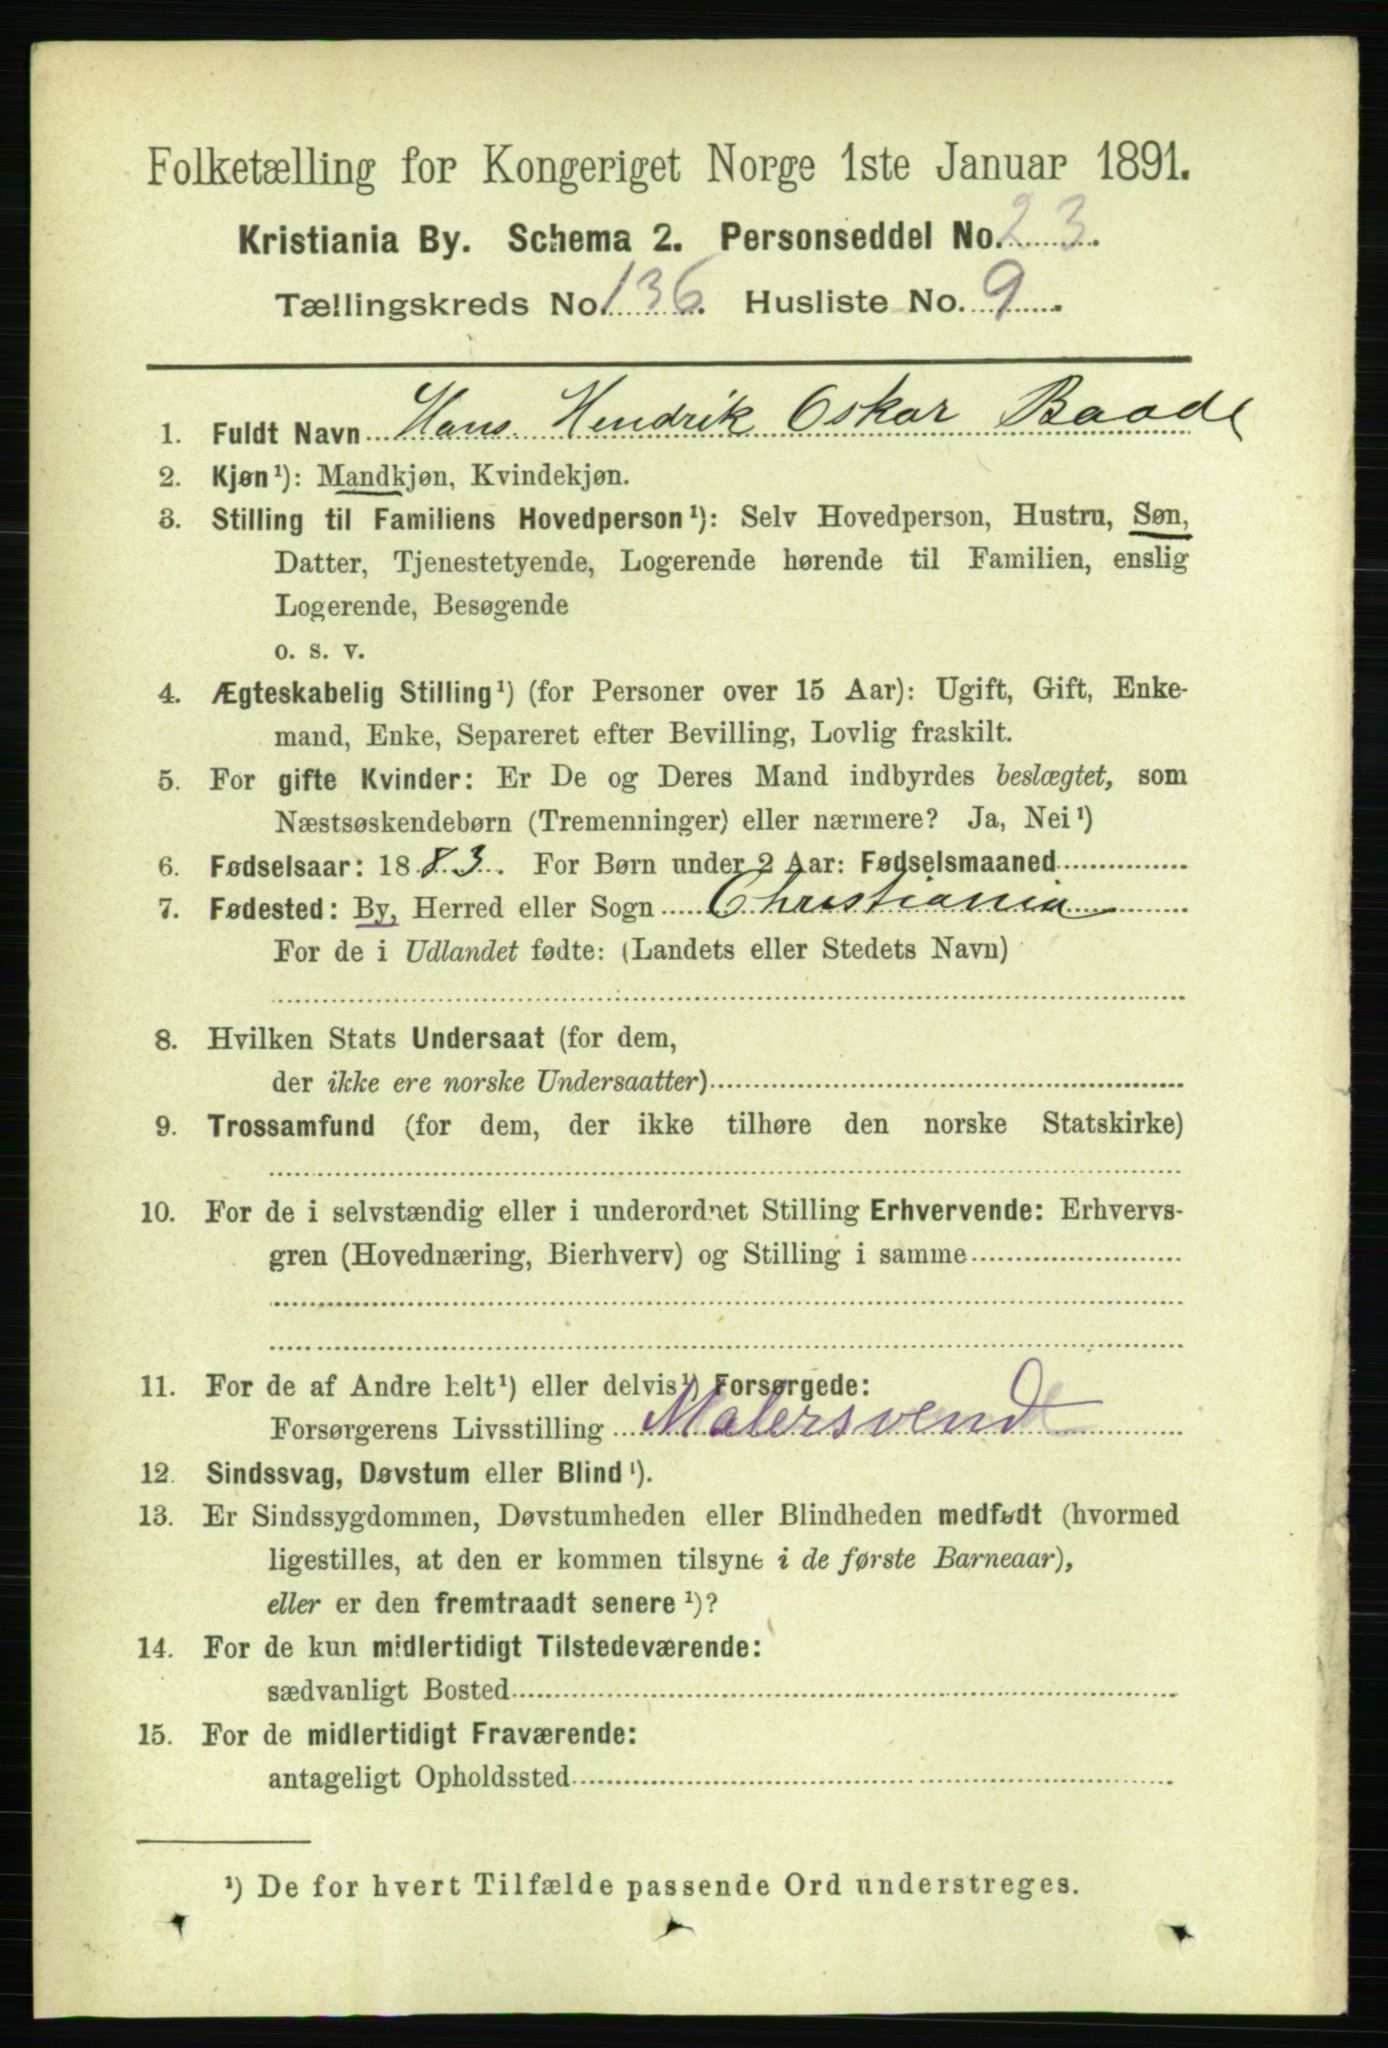 Folketælling for Kongeriget Norge 1ste Januar 1891.
Kristiania By. Schema 2. Personseddel No. 23.
Tællingskreds No. 136. Husliste No. 9.
1. Fuldt Navn Hans Hendrik Oskar Baade
2. Kjøn¹): Mandkjøn, Kvindekjøn.
3. Stilling til Familiens Hovedperson¹): Selv Hovedperson, Hustru, Søn,
Datter, Tjenestetyende, Logerende hørende til Familien, enslig
Logerende, Besøgende
o. s. v.
4. Ægteskabelig Stilling¹) (for Personer over 15 Aar): Ugift, Gift, Enke-
mand, Enke, Separeret efter Bevilling, Lovlig fraskilt.
5. For gifte Kvinder: Er De og Deres Mand indbyrdes beslægtet, som
Næstsøskendebørn (Tremenninger) eller nærmere? Ja, Nei¹)
6. Fødselsaar: 1883. For Børn under 2 Aar: Fødselsmaaned
7. Fødested: By, Herred eller Sogn Christiania
For de i Udlandet fødte: (Landets eller Stedets Navn)
8. Hvilken Stats Undersaat (for dem,
der ikke ere norske Undersaatter)
9. Trossamfund (for dem, der ikke tilhøre den norske Statskirke)
10. For de i selvstændig eller i underordnet Stilling Erhvervende: Erhvervs-
gren (Hovednæring, Bierhverv) og Stilling i samme
11. For de af Andre helt¹) eller delvis¹) Forsørgede:
Forsørgerens Livsstilling Malersvend
12. Sindssvag, Døvstum eller Blind¹).
13. Er Sindssygdommen, Døvstumheden eller Blindheden medfødt (hvormed
ligestilles, at den er kommen tilsyne i de første Barneaar),
eller er den fremtraadt senere¹)?
14. For de kun midlertidigt Tilstedeværende:
sædvanligt Bosted
15. For de midlertidigt Fraværende:
antageligt Opholdssted
¹) De for hvert Tilfælde passende Ord understreges.